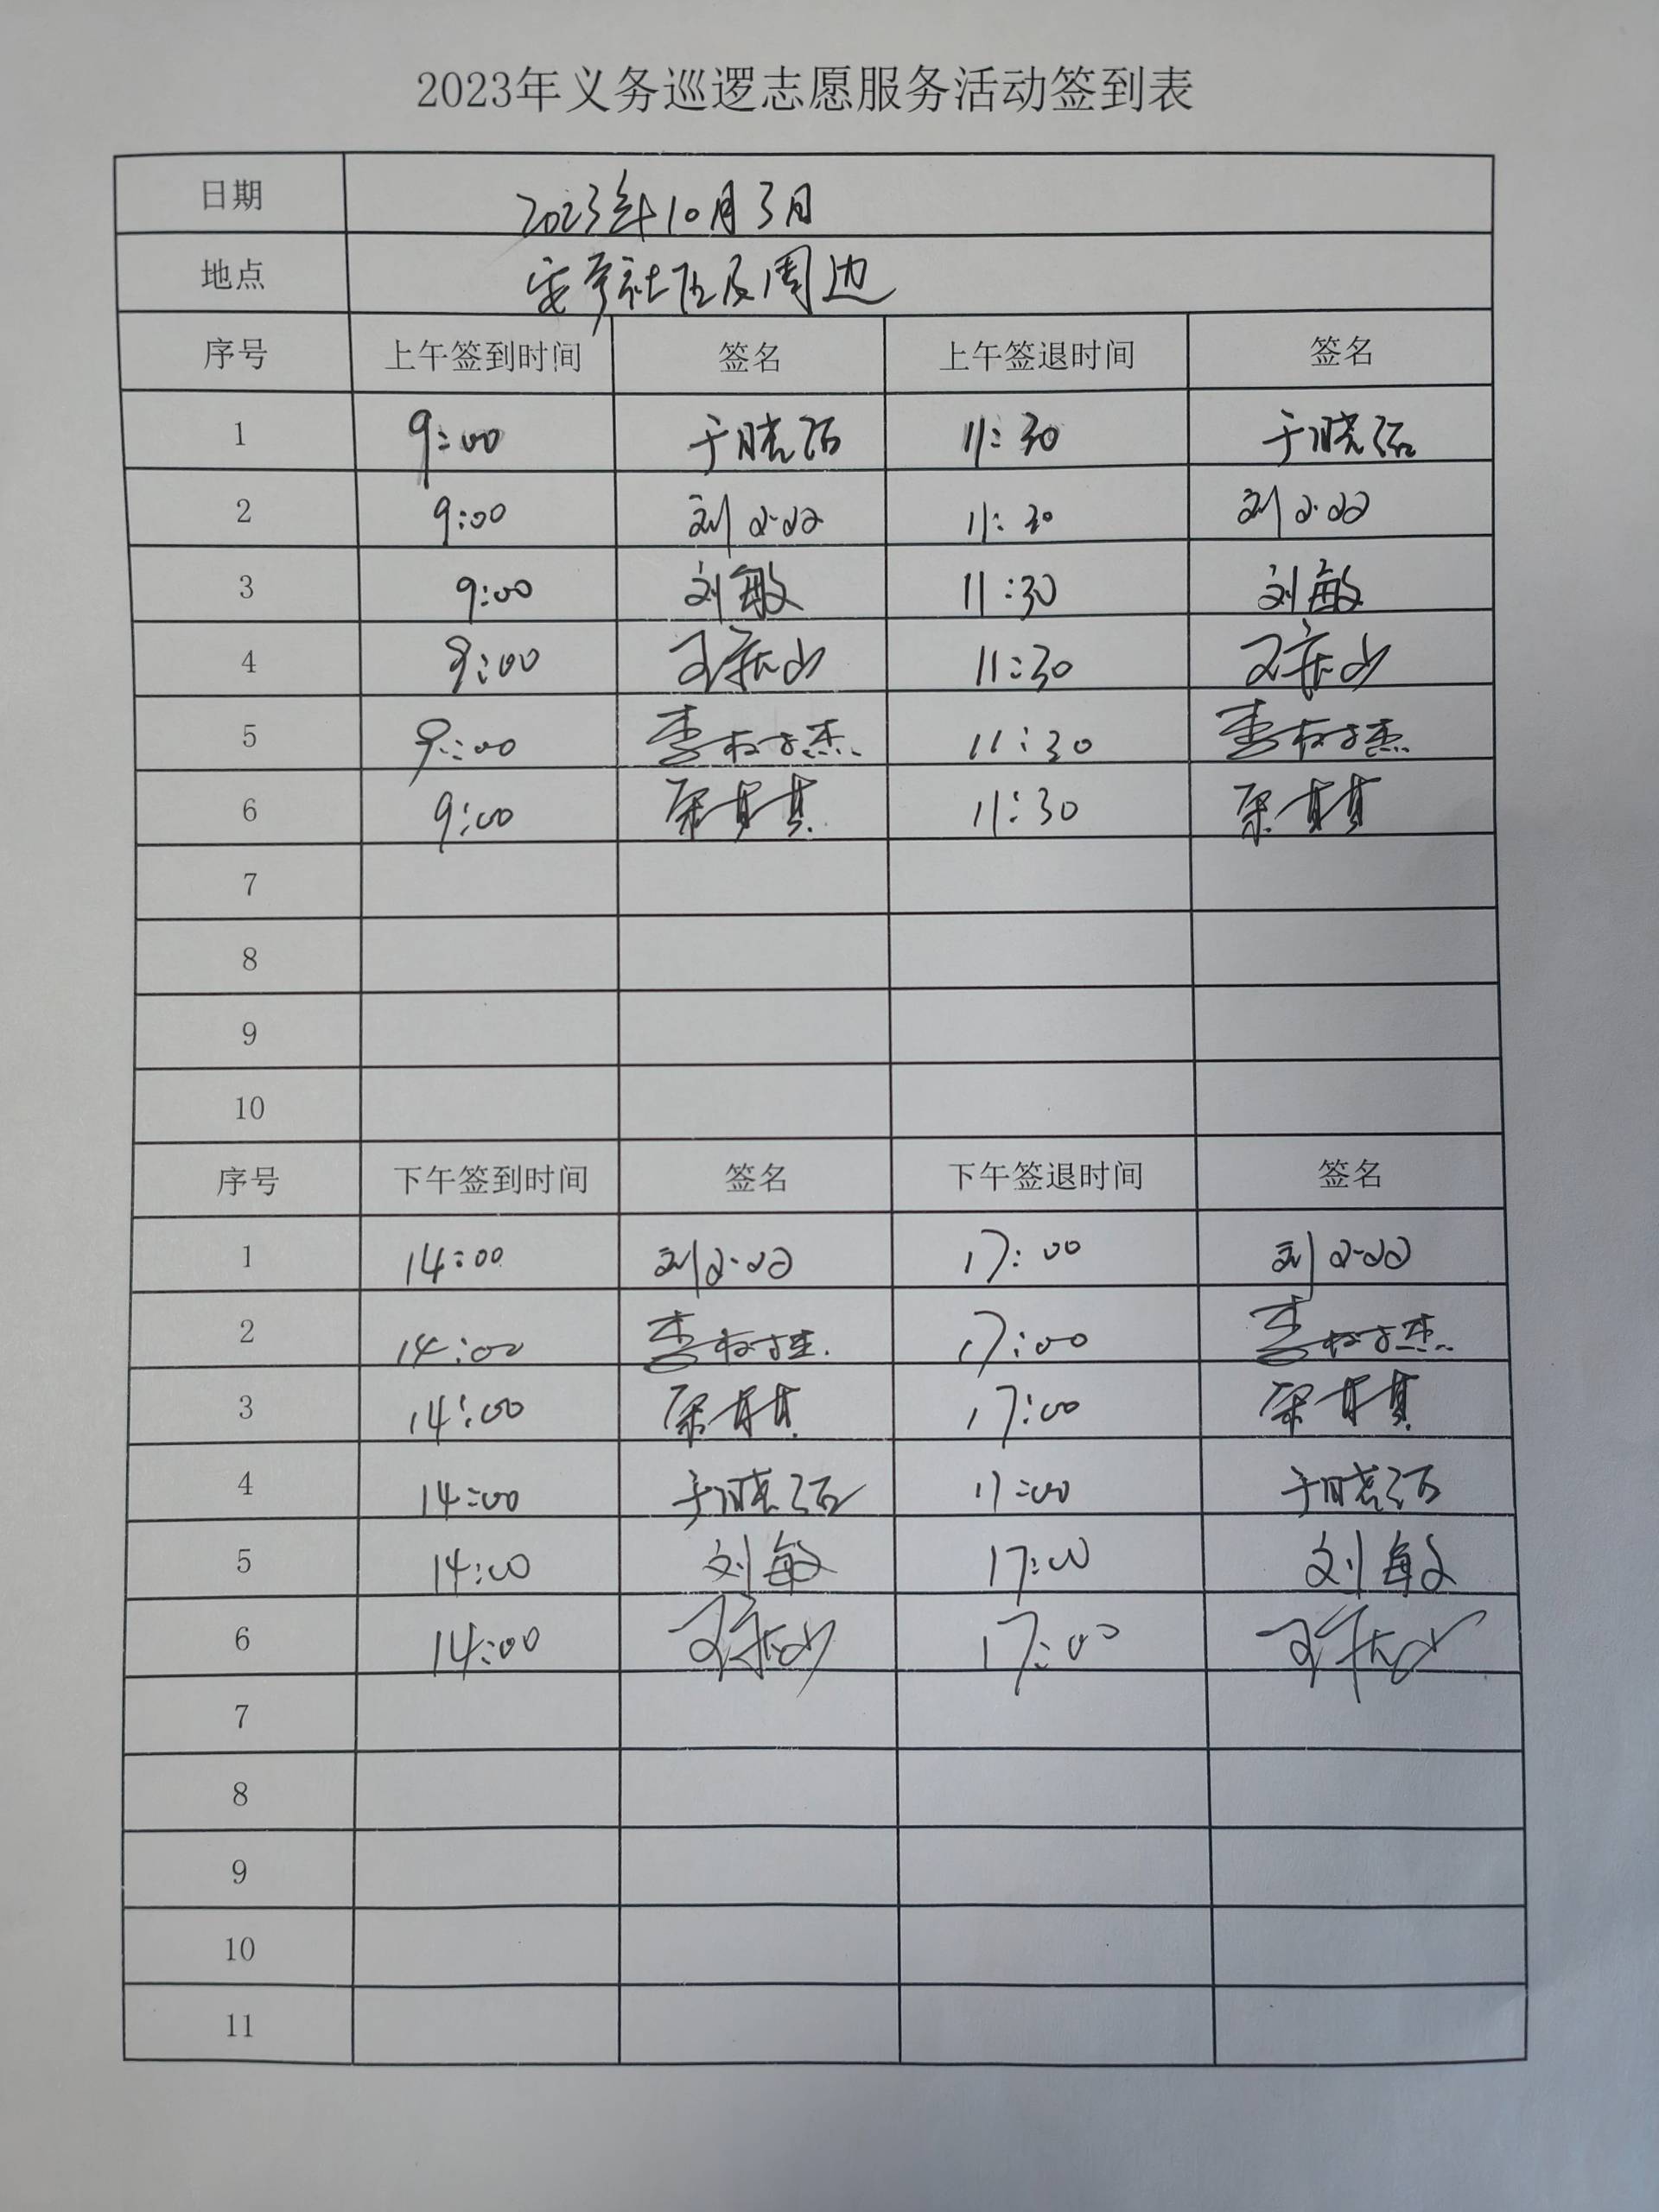 2023年义务巡逻志愿服务活动签到表
日期 2023年10月3日
地点 安亭社区及周边
序号 上午签到时间 签名 上午签退时间 签名
1 9:00 于晓 11:30 于晓
2 9:00 刘 11:30 刘
3 9:00 刘敏 11:30 刘敏
4 9:00 11:30
5 9:00 李树杰 11:30 李树杰
6 9:00 11:30
7
8
9
10
序号 下午签到时间 签名 下午签退时间 签名
1 14:00 刘 17:00 刘
2 14:00 李树杰 17:00 李树杰
3 14:00 17:00
4 14:00 于晓 17:00 于晓
5 14:00 刘敏 17:00 刘敏
6 14:00 17:00
7
8
9
10
11